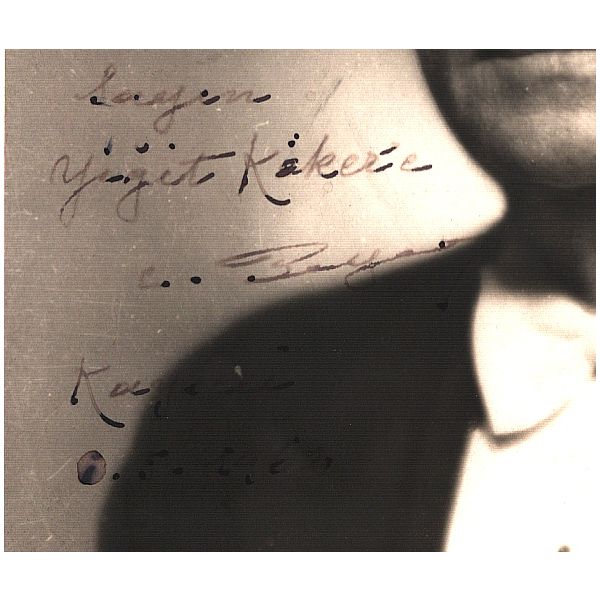 Sayın
Yiğit Köker'e
C. Bayar
Kayseri